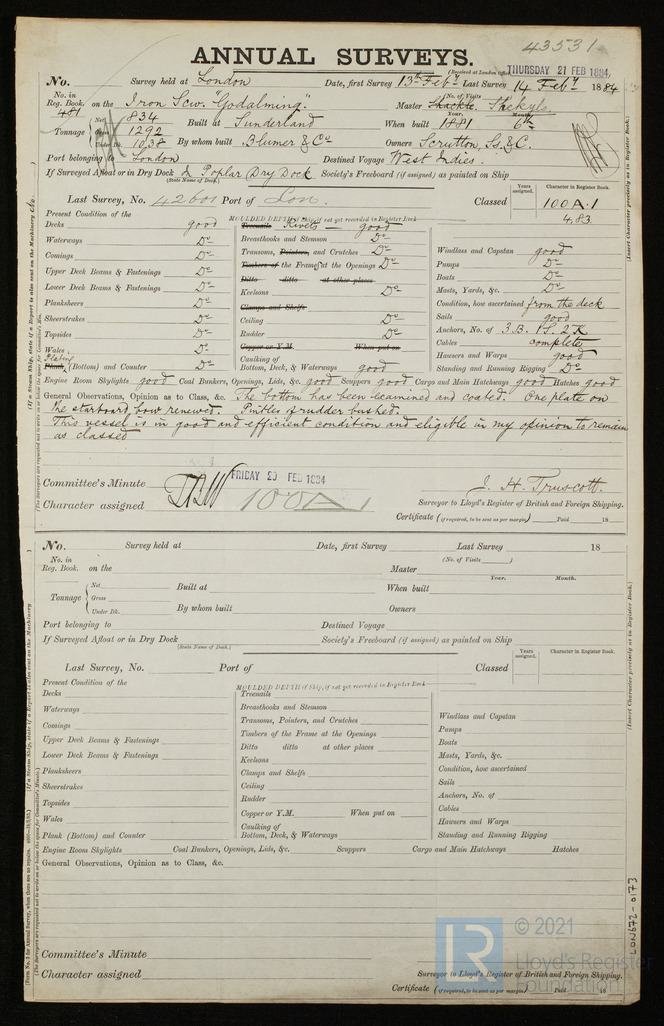 43531
ANNUAL SURVEYS.
(Received at London Office THURSDAY 21 FEB 1884
No. Survey held at London Date, first Survey 13th Feby Last Survey 14 Feby 1884
(No. of Visits
No. in Reg. Book. 481 on the Iron Scw. "Godalming" Master Shackle. Shekyls.
Year. Month.
Tonnage Net 834 Built at Sunderland When built 1881 6th
Gross 1292
Under Dk. 1038 By whom built Blumer & Co Owners Scrutton, Ss. & C.
Port belonging to London Destined Voyage West Indies.
If Surveyed Afloat or in Dry Dock Poplar Dry Dock Society's Freeboard (if assigned) as painted on Ship
(State Name of Dock.)
Last Survey, No. 42601 Port of Lon. Classed
Years assigned. Character in Register Book.
100A.1
4,83
Present Condition of the
MOULDED DEPTH if Ship, if not yet recorded in Register Book
Decks good Treenails Rivets good
Waterways Do Breasthooks and Stemson Do
Comings Do Transoms, Pointers, and Crutches Do Windlass and Capstan good
Upper Deck Beams & Fastenings Do Timbers of the Frame at the Openings Do Pumps Do
Ditto ditto at other places Boats Do
Lower Deck Beams & Fastenings Do Keelsons Do Masts, Yards, &c. Do
Planksheers Do Clamps and Shelfs Condition, how ascertained from the deck
Sheerstrakes Do Ceiling Do Sails good
Topsides Do Rudder Do Anchors, No. of 3B. 1S. 2K
Wales Do Copper or Y.M. When put on Cables complete
Plating
Plank (Bottom) and Counter Do Caulking of Bottom, Deck, & Waterways good Hawsers and Warps good
Standing and Running Rigging Do
Engine Room Skylights good Coal Bunkers, Openings, Lids, &c. good Scuppers good Cargo and Main Hatchways good Hatches good
General Observations, Opinion as to Class, &c. The bottom has been examined and coated. One plate on
the starboard bow renewed. Pintles of rudder bushed.
This vessel is in good and efficient condition and eligible in my opinion to remain
as classed
Committee's Minute FRIDAY 29 FEB 1884
J. H. Truscott.
Character assigned 100A1
Surveyor to Lloyd's Register of British and Foreign Shipping.
Certificate (if required, to be sent as per margin) Paid 18
No. Survey held at Date, first Survey Last Survey 18
(No. of Visits )
No. in Reg. Book. on the Master
Year. Month.
Tonnage Net Built at When built
Gross
Under Dk. By whom built Owners
Port belonging to Destined Voyage
If Surveyed Afloat or in Dry Dock Society's Freeboard (if assigned) as painted on Ship
(State Name of Dock.)
Years assigned. Character in Register Book.
Last Survey, No. Port of Classed
Present Condition of the
MOULDED DEPTH if Ship, if not yet recorded in Register Book
Decks Treenails
Waterways Breasthooks and Stemson
Comings Transoms, Pointers, and Crutches Windlass and Capstan
Upper Deck Beams & Fastenings Timbers of the Frame at the Openings Pumps
Ditto ditto at other places Boats
Lower Deck Beams & Fastenings Keelsons Masts, Yards, &c.
Planksheers Clamps and Shelfs Condition, how ascertained
Sheerstrakes Ceiling Sails
Topsides Rudder Anchors, No. of
Wales Copper or Y.M. When put on Cables
Caulking of Hawsers and Warps
Plank (Bottom) and Counter Bottom, Deck, & Waterways Standing and Running Rigging
Engine Room Skylights Coal Bunkers, Openings, Lids, &c. Scuppers Cargo and Main Hatchways Hatches
General Observations, Opinion as to Class, &c.
Committee's Minute
Character assigned
Surveyor to Lloyd's Register of British and Foreign Shipping.
Certificate (if required, to be sent as per margin) Paid 18
(Insert Character precisely as in Register Book.)
(Insert Character precisely as in Register Book.)
LON672-0173
© 2021
Lloyd's Register
Foundation